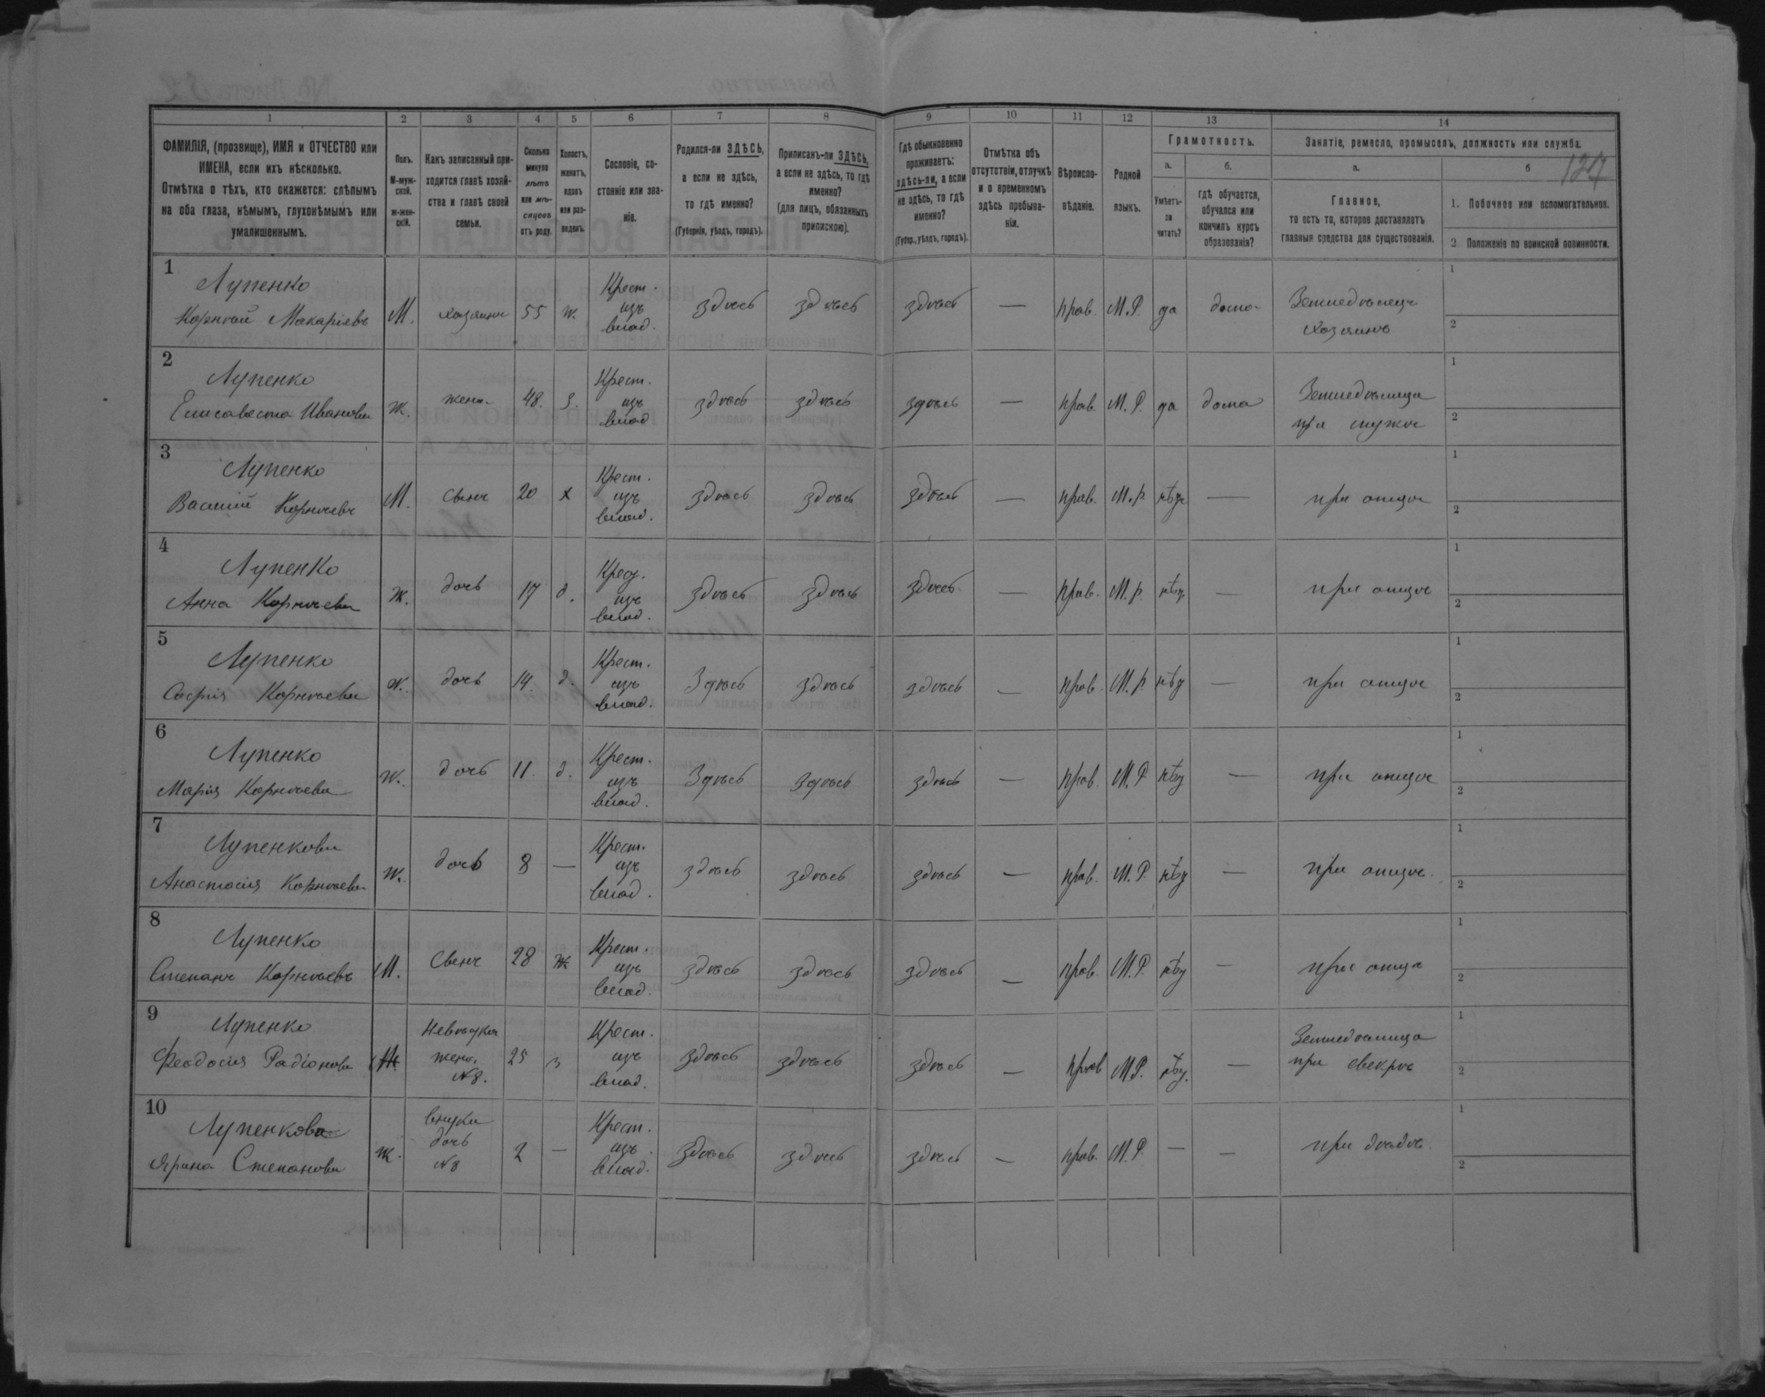 1 2 3 4 5 6 7 8 9 10 11 12 13 14
ФАМИЛІЯ, (прозвище), ИМЯ и ОТЧЕСТВО или
ИМЕНА, если ихъ нѣсколько.
Отмѣтка о тѣхъ, кто окажется: слѣпымъ
на оба глаза, нѣмымъ, глухонѣмымъ или
умалишеннымъ.
Полъ.
М-муж-
ской.
ж-жен-
скій.
Какъ записанный при-
ходится главѣ хозяй-
ства и главѣ своей
семьи.
Сколько
минуло
лѣтъ
или мѣ-
сяцевъ
отъ роду.
Холостъ,
женатъ,
вдовъ
или раз-
веденъ.
Сословіе, со-
стояніе или зва-
ніе.
Родился-ли ЗДѢСЬ,
а если не здѣсь,
то гдѣ именно?
(Губернія, уѣздъ, городъ).
Приписанъ-ли ЗДѢСЬ,
а если не здѣсь, то гдѣ
именно?
(для лицъ, обязанныхъ
припискою).
Гдѣ обыкновенно
проживаетъ:
здѣсь-ли, а если
не здѣсь, то гдѣ
именно?
(Губер., уѣздъ, городъ).
Отмѣтка объ
отсутствіи, отлучкѣ
и о временномъ
здѣсь пребыва-
ніи.
Вѣроиспо-
вѣданіе.
Родной
языкъ.
Грамотность.
а. б.
Умѣетъ-
ли
читать?
гдѣ обучается,
обучался или
кончилъ курсъ
образованія?
Занятіе, ремесло, промыселъ, должность или служба.
а. б
127
Главное,
то есть то, которое доставляетъ
главныя средства для существованія.
1. Побочное или вспомогательное.
2 Положеніе по воинской повинности.
1
Лупенко
Корнѣй Макаріевъ М. хозяинъ 55 ж. Крест. изъ влад. здѣсь здѣсь здѣсь — прав. М.Р. да дома Земледѣлецъ
хозяинъ
1
2
2
Лупенко
Елисавета Иванова ж. жена 48. з. Крест. изъ влад. здѣсь здѣсь здѣсь — прав. М.Р. да дома Земледѣлица
при мужѣ
1
2
3
Лупенко
Василій Корнѣевъ М. сынъ 20 х Крест. изъ влад. здѣсь здѣсь здѣсь — прав. М.р нѣт — при отцѣ
1
2
4
Лупенко
Анна Корнѣева ж. дочь 17 д. Крес. изъ влад. здѣсь здѣсь здѣсь — прав. М.р. нѣт — при отцѣ
1
2
5
Лупенко
Софія Корнѣева ж. дочь 14 д. Крест. изъ влад. здѣсь здѣсь здѣсь — прав. М.р нѣт — при отцѣ
1
2
6
Лупенко
Марія Корнѣева ж. дочь 11. д. Крест. изъ влад. здѣсь здѣсь здѣсь — прав. М.Р нѣт — при отцѣ
1
2
7
Лупенкова
Анастасія Корнѣева ж. дочь 8 — Крест. изъ влад. здѣсь здѣсь здѣсь — прав. М.Р. нѣт — при отцѣ.
1
2
8
Лупенко
Степанъ Корнѣевъ М. сынъ 28 ж Крест. изъ влад. здѣсь здѣсь здѣсь — прав. М.Р. нѣт — при отцѣ
1
2
9
Лупенко
Феодосія Радіонова ж невѣстка
жена
№8. 25 з Крест. изъ влад. здѣсь здѣсь здѣсь — прав М.Р. нѣт. — Земледѣлица
при свекрѣ
1
2
10
Лупенкова
Ярина Степанова ж. внука
дочь
№8 2 — Крест. изъ влад. здѣсь здѣсь здѣсь — прав. М.Р. — — при дѣдѣ.
1
2